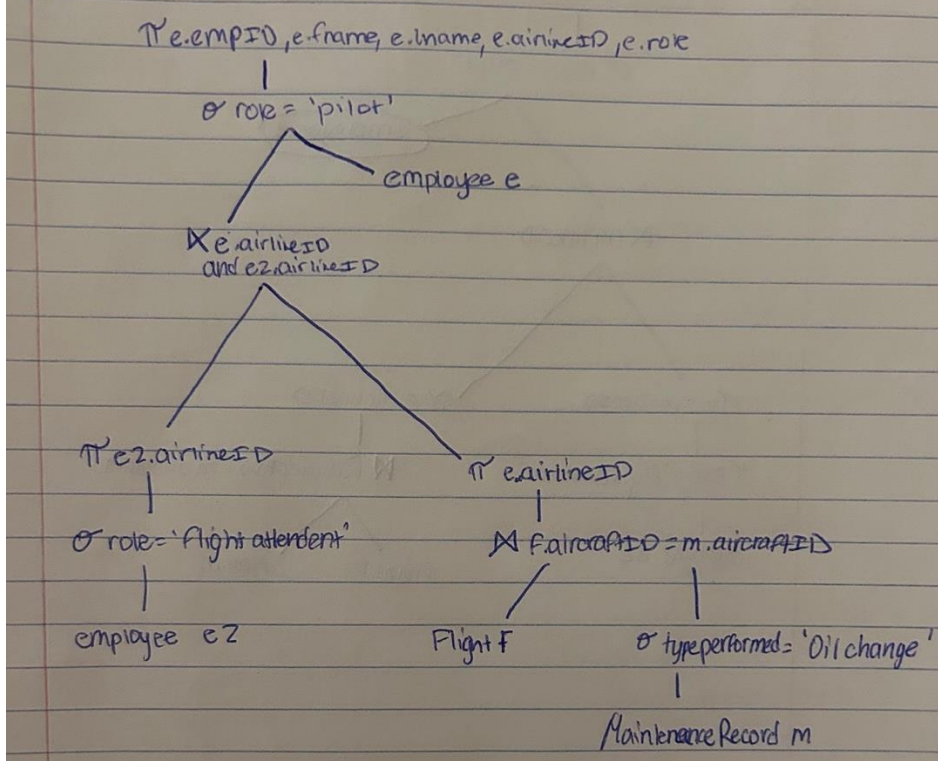 π e.empID, e.fname, e.lname, e.airlineID, e.role
σ role = 'pilot'
employee e
⋉ e.airlineID
and e2.airlineID
π e2.airlineID
π e.airlineID
σ role = 'flight attendent'
⋈ f.aircraftID = m.aircraftID
employee e2
Flight f
σ typeperformed = 'Oil change'
MaintenanceRecord m